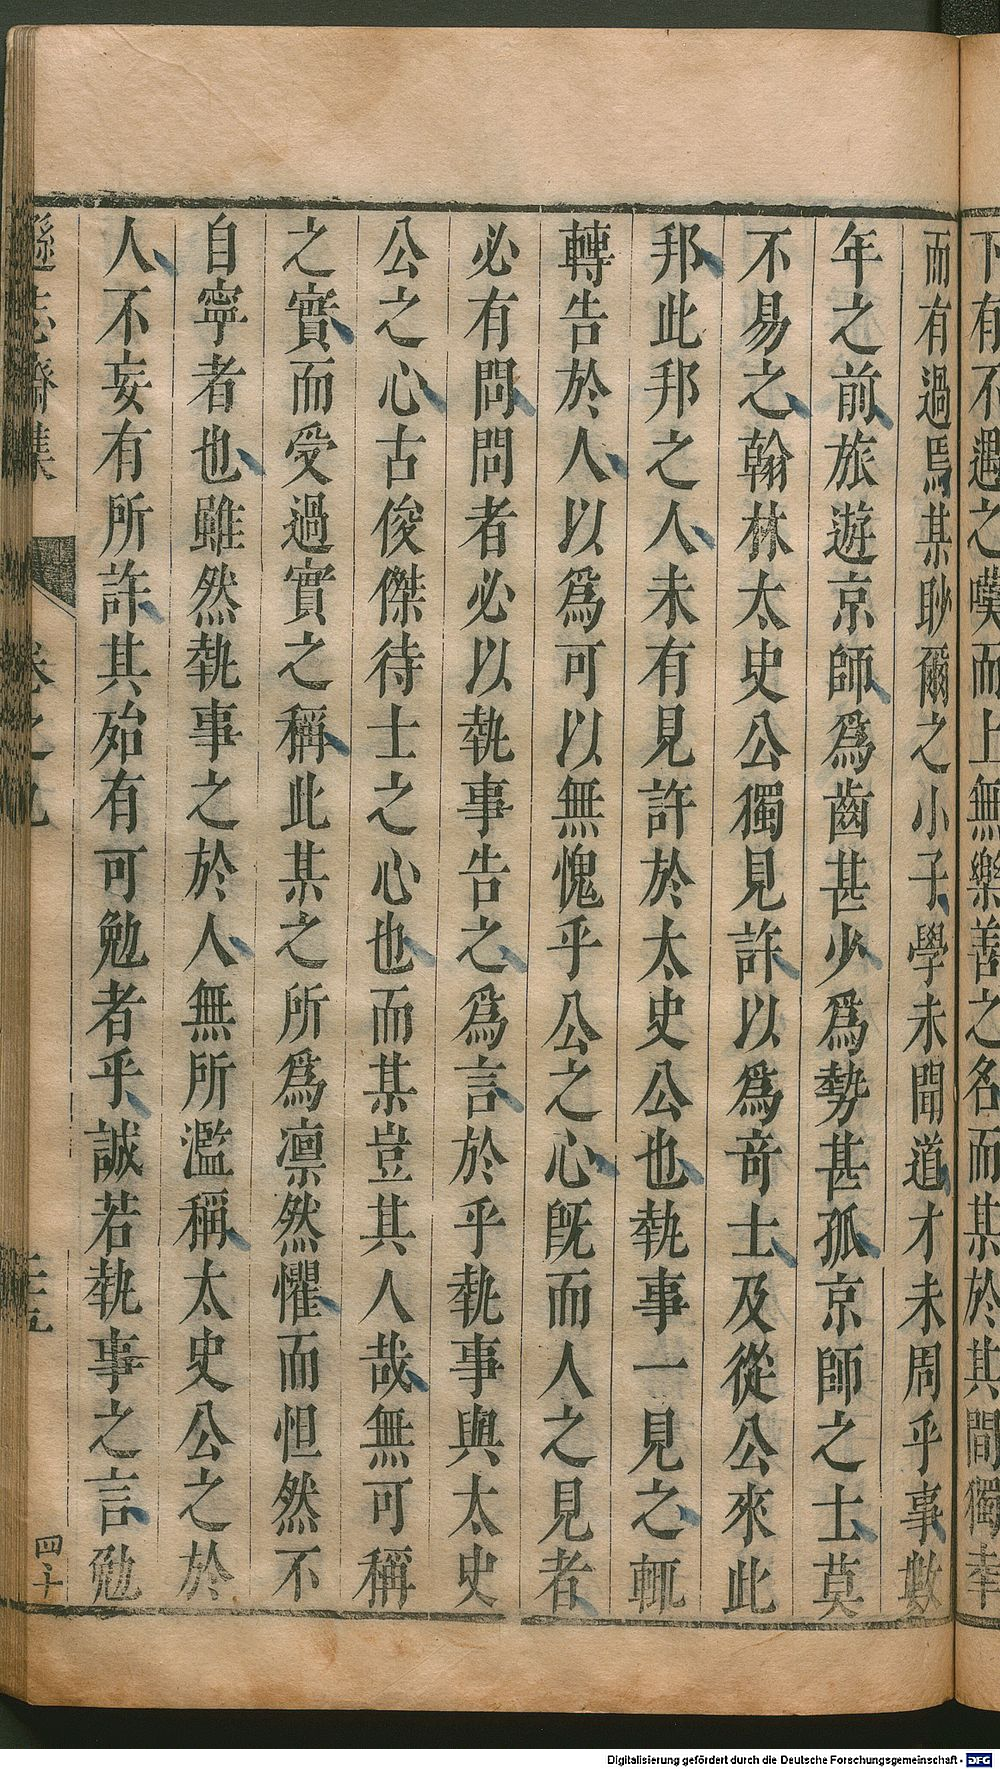 下有不遇之嘆而上無樂善之名而某於其間獨幸
而有過焉某眇爾之小子學未聞道才未周乎事數
年之前旅遊京師爲齒甚少爲勢甚孤京師之士莫
不易之翰林太史公獨見許以爲竒士及從公來此
邦此邦之人未有見許於太史公也執事一見之輒
轉告於人以爲可以無愧乎公之心旣而人之見者
必有問問者必以執事告之爲言於乎執事與太史
公之心古俊傑待士之心也而某豈其人哉無可稱
之實而受過實之稱此某之所爲凛然懼而怛然不
自寧者也雖然執事之於人無所濫稱太史公之於
人不妄有所許其殆有可勉者乎誠若執事之言勉
遜志齋集 卷之九 三五 四十
Digitalisierung gefördert durch die Deutsche Forschungsgemeinschaft - DFG